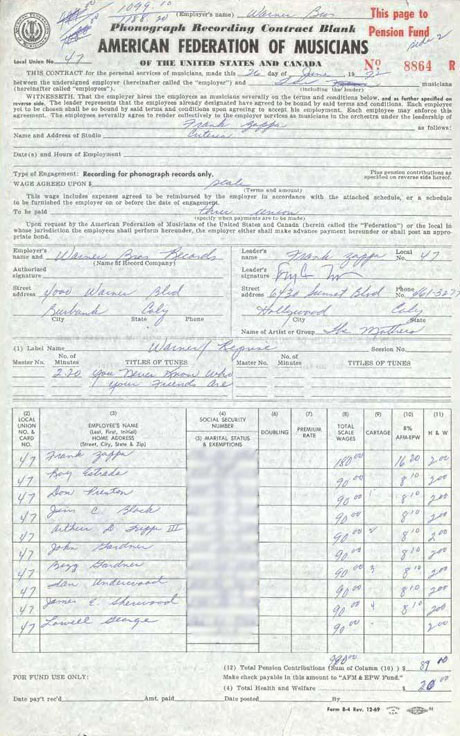 1099.10 (Employer's name) Warner Bros
1188.20
This page to
Pension Fund
Phonograph Recording Contract Blank
AMERICAN FEDERATION OF MUSICIANS
OF THE UNITED STATES AND CANADA
Local Union No. 47
Nº 8864 R
THIS CONTRACT for the personal services of musicians, made this 26 day of June 1972
between the undersigned employer (hereinafter called the "employer") and musicians
(hereinafter called "employees"). (including the leader)
WITNESSETH, That the employer hires the employees as musicians severally on the terms and conditions below, and as further specified on
reverse side. The leader represents that the employees already designated have agreed to be bound by said terms and conditions. Each employee
yet to be chosen shall be so bound by said terms and conditions upon agreeing to accept his employment. Each employee may enforce this
agreement. The employees severally agree to render collectively to the employer services as musicians in the orchestra under the leadership of
Frank Zappa as follows:
Name and Address of Studio Criteria
Date(s) and Hours of Employment
Type of Engagement: Recording for phonograph records only. Plus pension contributions as
specified on reverse side hereof.
WAGE AGREED UPON $ scale
(Terms and amount)
This wage includes expenses agreed to be reimbursed by the employer in accordance with the attached schedule, or a schedule
to be furnished the employer on or before the date of engagement.
To be paid three sessions
(specify when payments are to be made)
Upon request by the American Federation of Musicians of the United States and Canada (herein called the "Federation") or the local in
whose jurisdiction the employees shall perform hereunder, the employer either shall make advance payment hereunder or shall post an appro-
priate bond.
Employer's name and Warner Bros Records Leader's name Frank Zappa Local No. 47
(Name of Record Company)
Authorized signature Leader's signature
Street address 4000 Warner Blvd Street address 6430 Sunset Blvd Phone No.
Burbank Calif Hollywood Calif
City State Phone City State
Name of Artist or Group The Mothers
(1) Label Name Warner/Reprise Session No.
Master No. No. of Minutes TITLES OF TUNES Master No. No. of Minutes TITLES OF TUNES
2:20 You Never Know Who
Your Friends Are
(2) LOCAL UNION NO. & CARD NO. (3) EMPLOYEE'S NAME (Last, First, Initial) HOME ADDRESS (Street, City, State & Zip) (4) SOCIAL SECURITY NUMBER (5) MARITAL STATUS & EXEMPTIONS (6) DOUBLING (7) PREMIUM RATE (8) TOTAL SCALE WAGES (9) CARTAGE (10) 8% AFM-EPW (11) H & W
47 Frank Zappa 180.00 16.20 2.00
47 Roy Estrada 90.00 8.10 2.00
47 Don Preston 90.00 8.10 2.00
47 Jim C. Black 90.00 8.10 2.00
47 Arthur D. Tripp III 90.00 8.10 2.00
47 John Gardner 90.00 8.10 2.00
47 Bezz Gardner 90.00 8.10 2.00
47 Ian Underwood 90.00 8.10 2.00
47 James E. Sherwood 90.00 8.10 2.00
47 Lowell George 90.00 2.00
990.00
(12) Total Pension Contributions (Sum of Column (10)) $ 89.00
Make check payable in this amount to "AFM & EPW Fund."
FOR FUND USE ONLY: (4) Total Health and Welfare $ 20.00
Date pay't rec'd Amt. paid Date posted By
Form B-4 Rev. 12-69